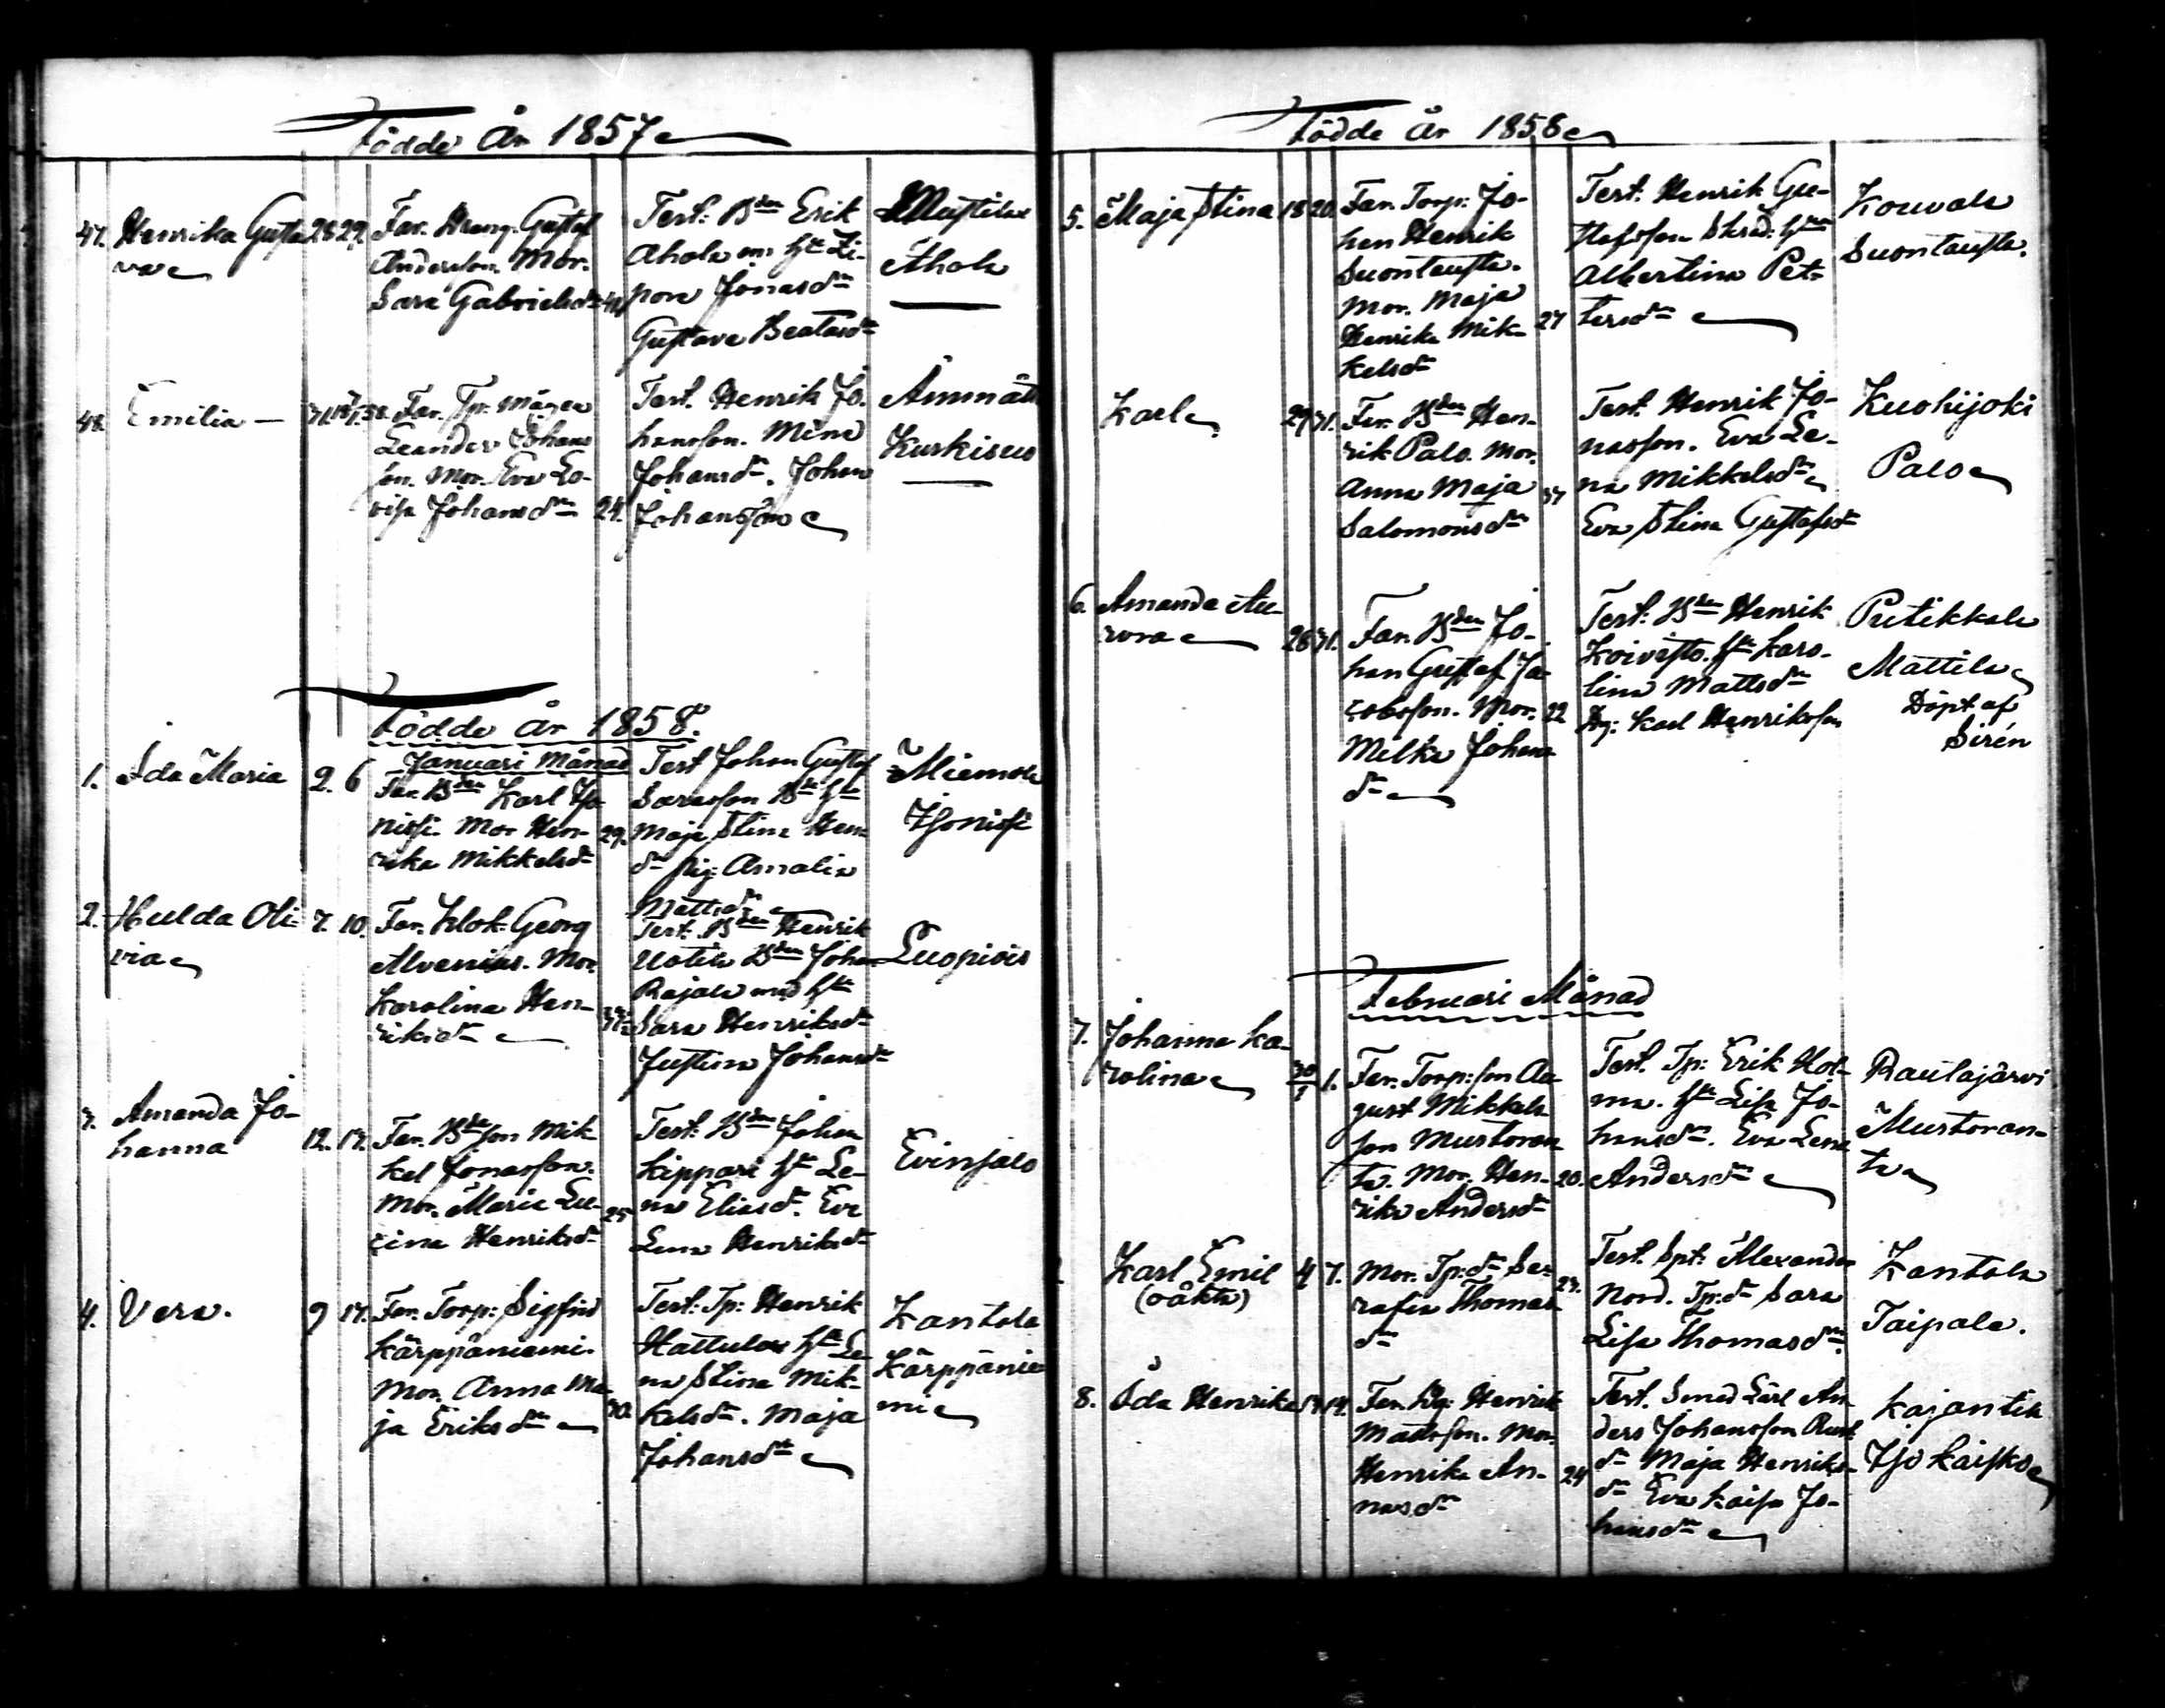 Födde År 1857
47. Henrika Gusta
va
28 29.
Far. Dreng. Gustaf
Andersson. Mor.
Sara Gabrielsdr 41
Test: Bden Erik
Ahola m: hu Li-
pora Jonasdr
Gustava Beatasdr
Mustila
Ahola
48. Emilia —
Far. Tp. mågen
Leander Johans
son. Mor. Eva Lo-
visa Johansdr 24.
Test. Henrik Jo-
hansson. Mina
Johansdr. Johan
Johansson
Ämmät
Kurkisuo
Födde År 1858.
Januari Månad
1. Ida Maria 2. 6
Far. Bden Karl Iso
nissi. Mor Hen-
rika Mikkelsdr
29.
Test Johan Gustaf
Saresson Bde hu
Maja Stina Hen
dr pig: Amalia
Mattsdr
Miemola
Isonissi
2. Hulda Oli-
via
7. 10.
Far. Klok: Georg
Alvenius. Mor.
Karolina Hen-
riksdr
Test. Bden Henrik
Uotila Bden Johan
Rajala med hu
Sara Henriksdr
Justina Johansdr
Luopiois
3. Amanda Jo-
hanna
12. 17.
Far. Bde son Mik
kel Jonasson.
Mor. Maria Lu-
cina Henriksdr
25
Test: Bden Johan
Kippari hu Le-
na Eliasdr. Eva
Lena Henriksdr
Evinsalo
4. Vera. 9 17.
Far. Torp: Sigfrid
Kärppäniemi.
Mor. Anna Ma-
ja Eriksdr
30.
Test: Tp: Henrik
Hattula hu Le
na Stina Mik-
kelsdr. Maja
Johansdr
Kantola
Kärppänie
mi
Födde År 1858
5. Maja Stina 18 20.
Far. Torp: Jo-
han Henrik
Suontausta.
Mor. Maja
Henrika Mik-
kelsdr
27
Test. Henrik Gu-
stafsson Skräd: hu
Albertina Pet-
tersdr
Kouvala
Suontausta.
Karl 29 31.
Far. Bden Hen-
rik Palo. Mor.
Anna Maja
Salomonsdr
37
Test. Henrik Jo-
nasson. Eva Le-
na Mikkelsdr
Eva Stina Gustafsdr
Kuohijoki
Palo
6. Amanda Au-
rora
28 31.
Far. Bden Jo-
han Gustaf Ja
cobsson. Mor. 22
Milka Johans
dr
Test: Bde Henrik
Koivisto. hu Karo-
lina Mattsdr
Dg: Karl Henriksson
Putikkala
Mattila
Döpt af
Sirén
Februari Månad
7. Johanna Ka-
rolina
30/1 1.
Far. Torp: son Au
gust Mikkels
son Mustoran
ta. Mor. Hen- 20.
rika Andersdr
Test. Tp: Erik Hol-
ma. hu Lisa Jo-
hansdr. Eva Lena
Andersdr
Rautajärvi
Mustoran-
ta
Karl Emil 4 7.
(oäkta)
Mor. Tp: dr Se-
rafia Thomas
dr
23.
Test. Spt: Alexander
Nord. Tp: dr Sara
Lisa Thomasdr.
Kantola
Taipale.
8. Ida Henrika
Far. Dg: Henrik
Mattsson. Mor.
Henrika An- 24
nasdr
Test. Smed Lärl An
ders Johansson Rust
dr Maja Henriks-
dr Eva Kaisa Jo-
hansdr
Kajantila
Iso Kaisko